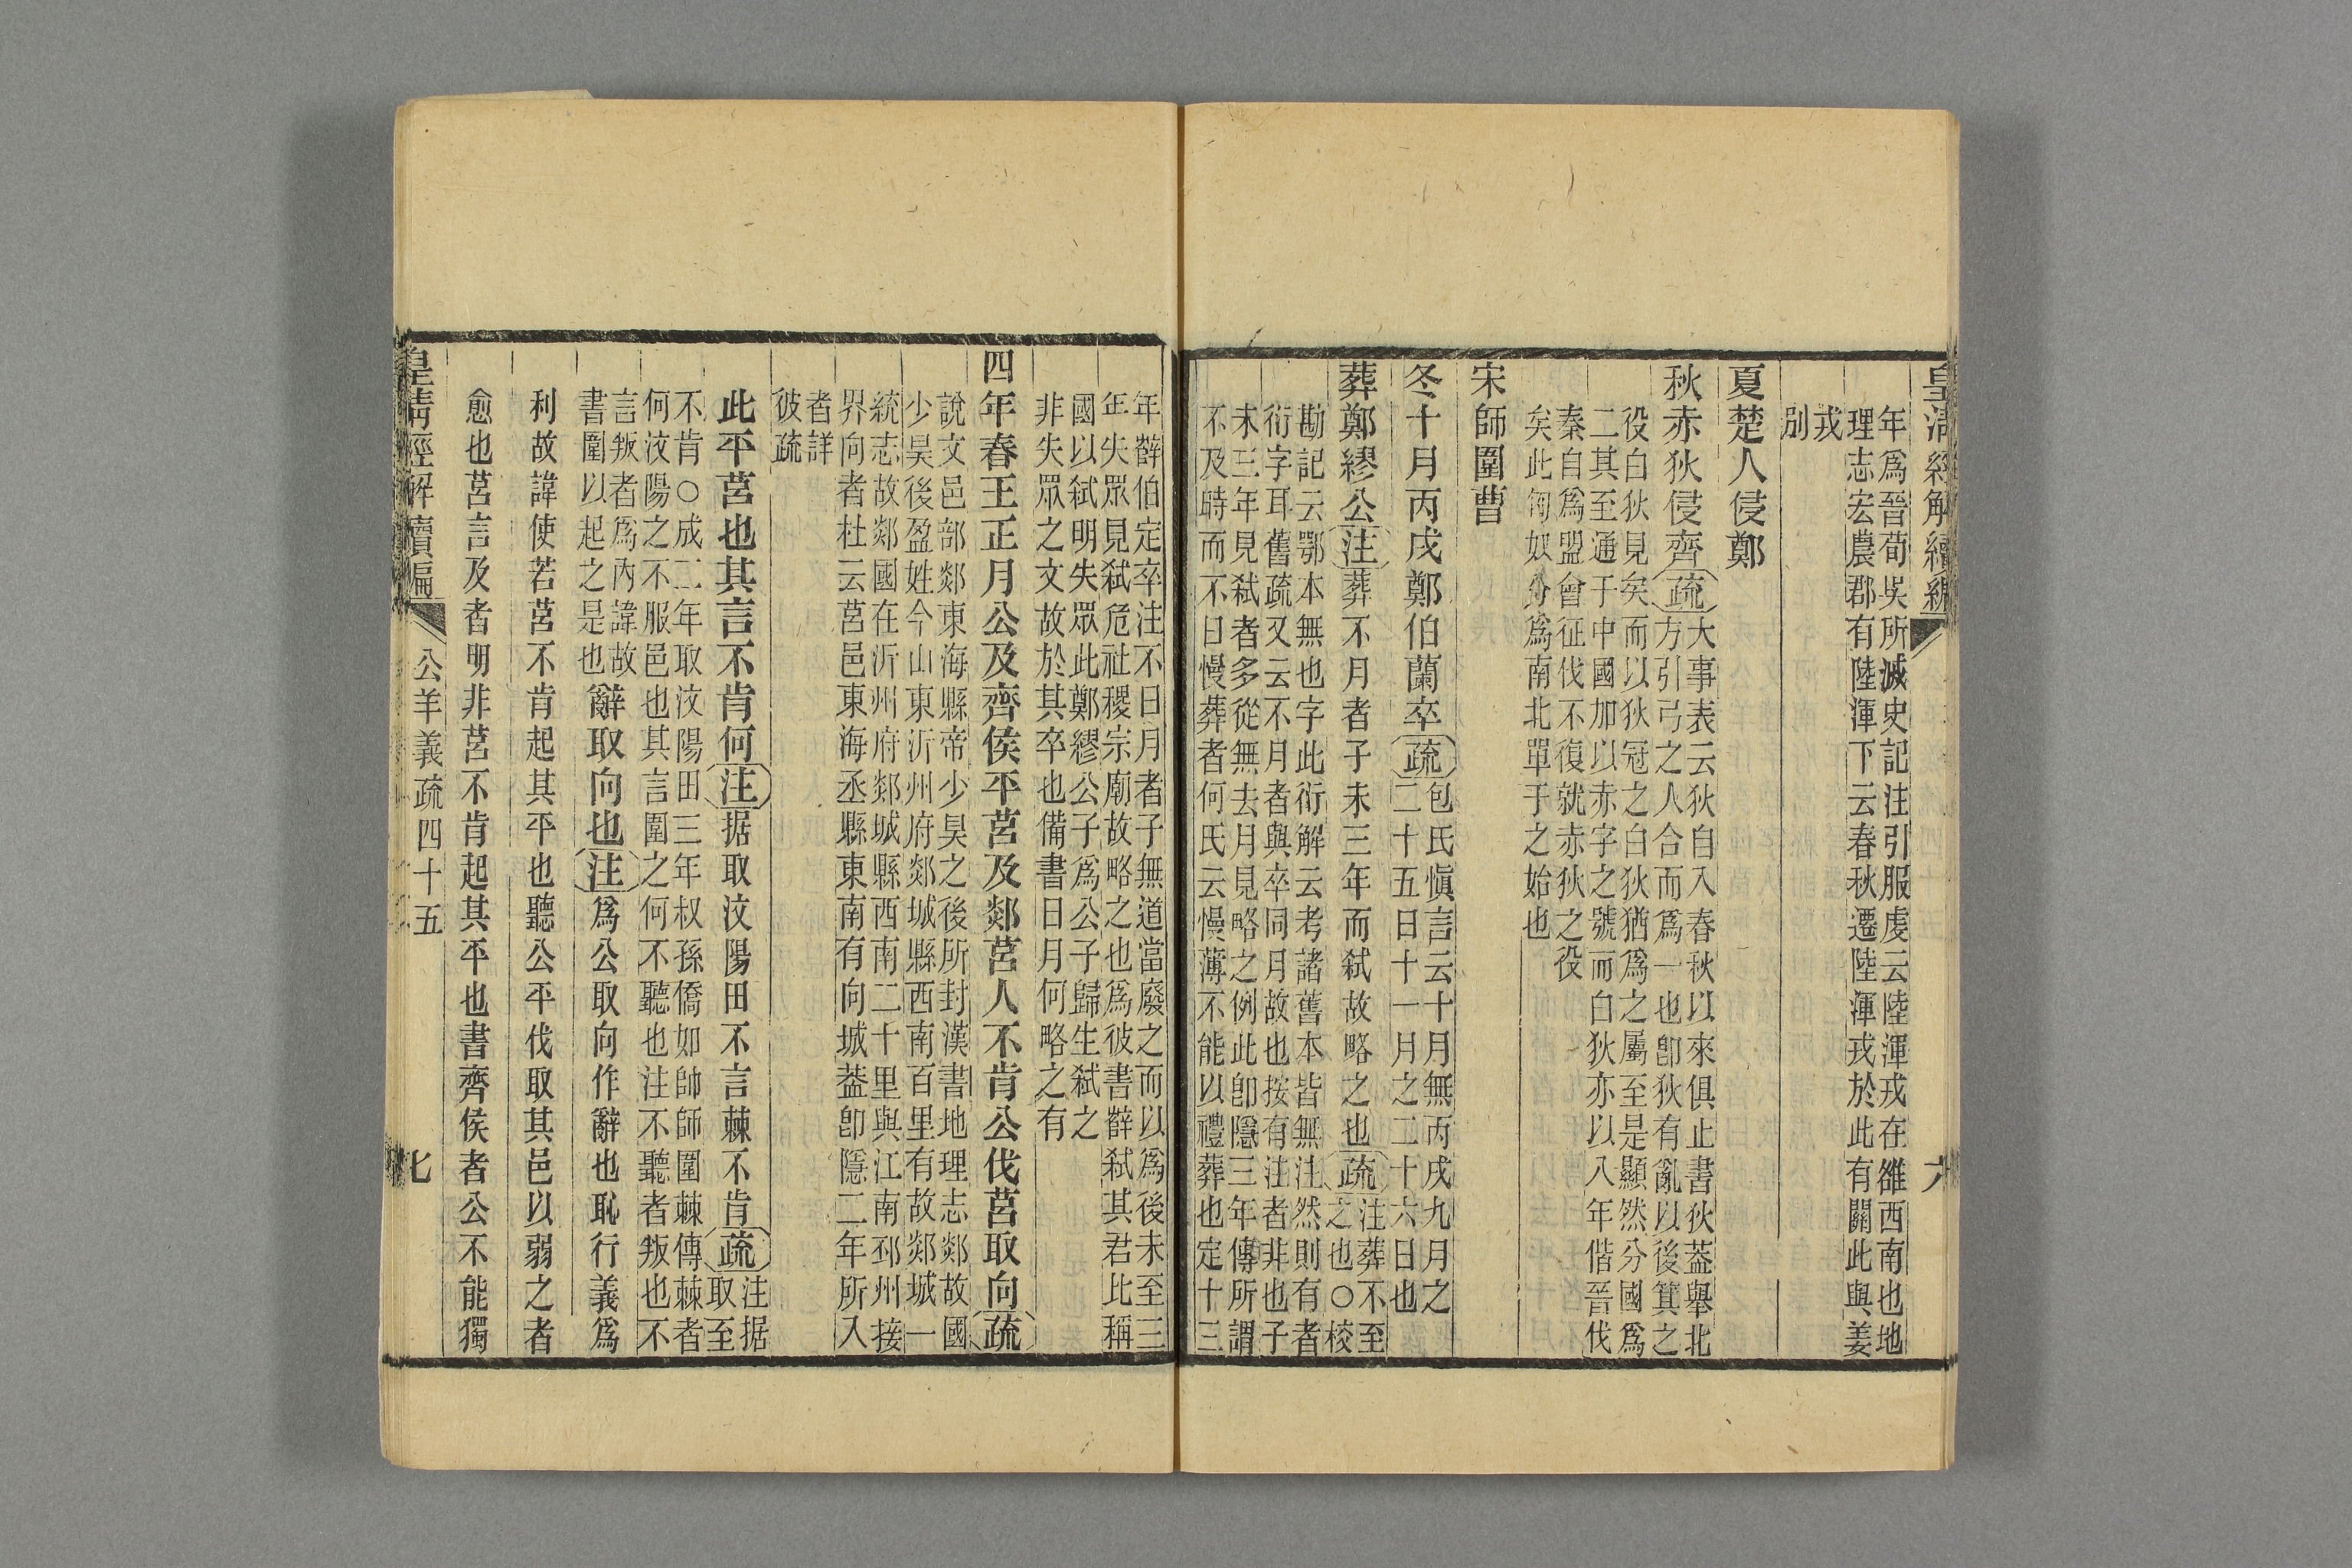 皇清經解續編
六
年爲晉荀吳所滅史記注引服虔云陸渾戎在雒西南也地
理志宏農郡有陸渾下云春秋遷陸渾戎於此有關此與姜
戎
別
夏楚人侵鄭
秋赤狄侵齊疏
大事表云狄自入春秋以來俱止書狄葢舉北
方引弓之人合而爲一也卽狄有亂以後箕之
役白狄見矣而以狄冠之白狄猶爲之屬至是顯然分國爲
二其至通于中國加以赤字之號而白狄亦以八年偕晉伐
秦自爲盟會征伐不復就赤狄之役
矣此匈奴分爲南北單于之始也
宋師圍曹
冬十月丙戌鄭伯蘭卒疏
包氏愼言云十月無丙戌九月之
二十五日十一月之二十六日也
葬鄭繆公注葬不月者子未三年而弑故略之也疏
注葬不至
之也○校
勘記云鄂本無也字此衍解云考諸舊本皆無注然則有者
衍字耳舊疏又云不月者與卒同月故也按有注者非也子
未三年見弑者多從無去月見略之例此卽隱三年傳所謂
不及時而不日慢葬者何氏云慢薄不能以禮葬也定十三
年薛伯定卒注不日月者子無道當廢之而以爲後未至三
年失眾見弑危社稷宗廟故略之也爲彼書薛弑其君比稱
國以弑明失眾此鄭繆公子爲公子歸生弑之
非失眾之文故於其卒也備書日月何略之有
四年春王正月公及齊侯平莒及郯莒人不肯公伐莒取向疏
說文邑部郯東海縣帝少昊之後所封漢書地理志郯故國
少昊後盈姓今山東沂州府郯城縣西南百里有故郯城一
統志故郯國在沂州府郯城縣西南二十里與江南邳州接
界向者杜云莒邑東海丞縣東南有向城葢卽隱二年所入
者詳
彼疏
此平莒也其言不肯何注据取汶陽田不言棘不肯疏
注据
取至
不肯○成二年取汶陽田三年叔孫僑如帥師圍棘傳棘者
何汶陽之不服邑也其言圍之何不聽也注不聽者叛也不
言叛者爲內諱故
書圍以起之是也
辭取向也注爲公取向作辭也恥行義爲
利故諱使若莒不肯起其平也聽公平伐取其邑以弱之者
愈也莒言及者明非莒不肯起其平也書齊侯者公不能獨
皇清經解續編
公羊義疏四十五
七